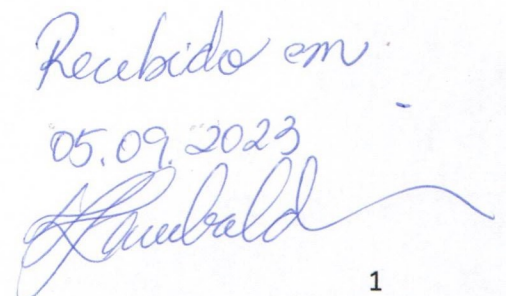 Recebido em
05.09.2023
1